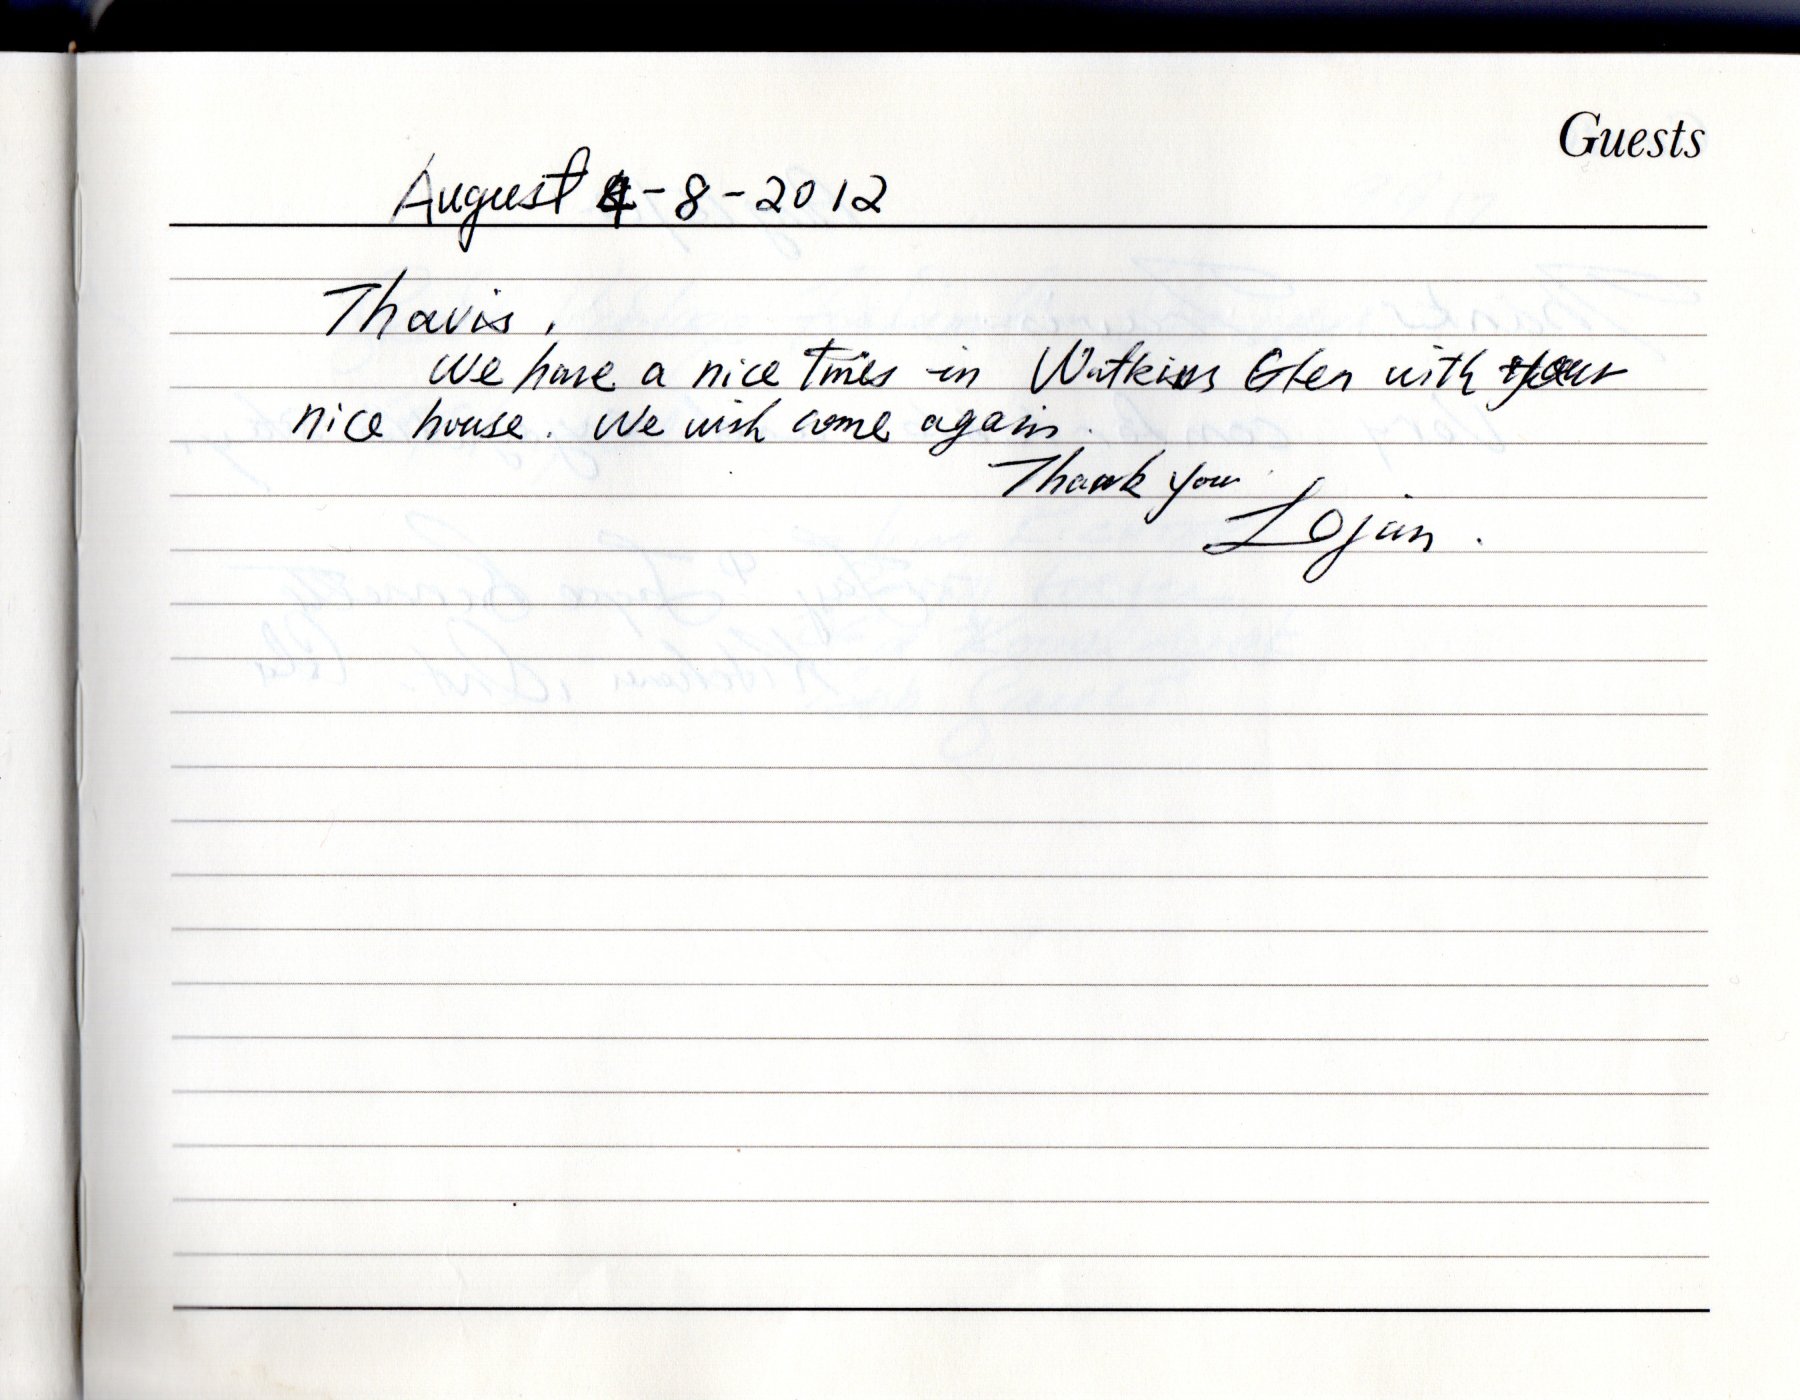 Guests
August 4-8-2012
Thavis,
We have a nice times in Watkins Glen with your
nice house. We wish come again.
Thank you
Lojan.